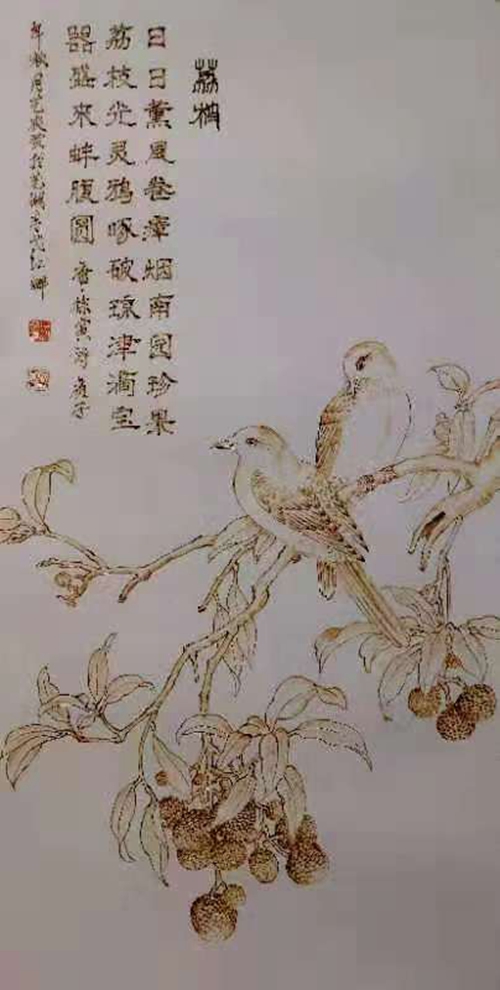 荔枝
日日薰风卷瘴烟南园珍果
荔枝先灵鸦啄破琼津滴宝
器盛来蚌腹圆 唐·徐寅诗
年秋月 芜湖